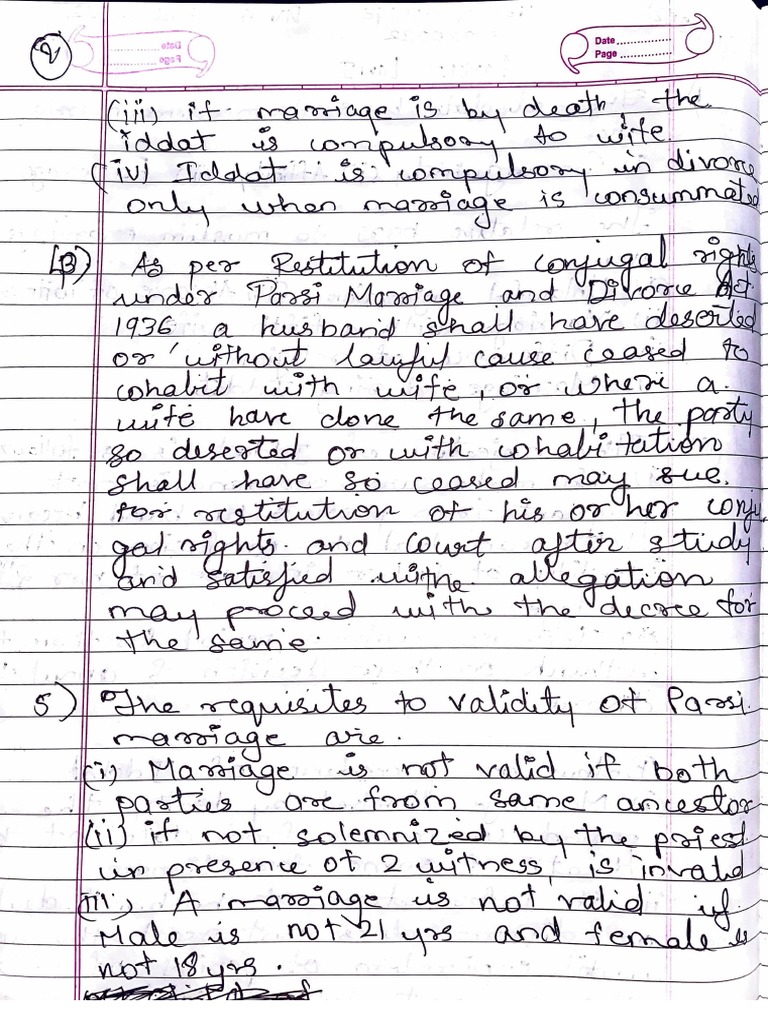 2
Date
Page
(iii) if marriage is by death, the
iddat is compulsory to wife.
(iv) Iddat is compulsory in divorce
only when marriage is consummated
(B) As per Restitution of conjugal rights
under Parsi Marriage and Divorce Act
1936 a husband shall have deserted
or without lawful cause ceased to
cohabit with wife, or where a
wife have done the same, the party
so deserted or with cohabitation
shall have so ceased may sue
for restitution of his or her conju
gal rights and court after study
and satisfied withe allegation
may proceed with the decree for
the same.
5) The requisites to validity of Parsi
marriage are.
(i) Marriage is not valid if both
parties are from same ancestor
(ii) if not solemnized by the priest
in presence of 2 witness, is invalid
(iii) A marriage is not valid if
Male is not 21 yrs and female is
not 18 yrs.